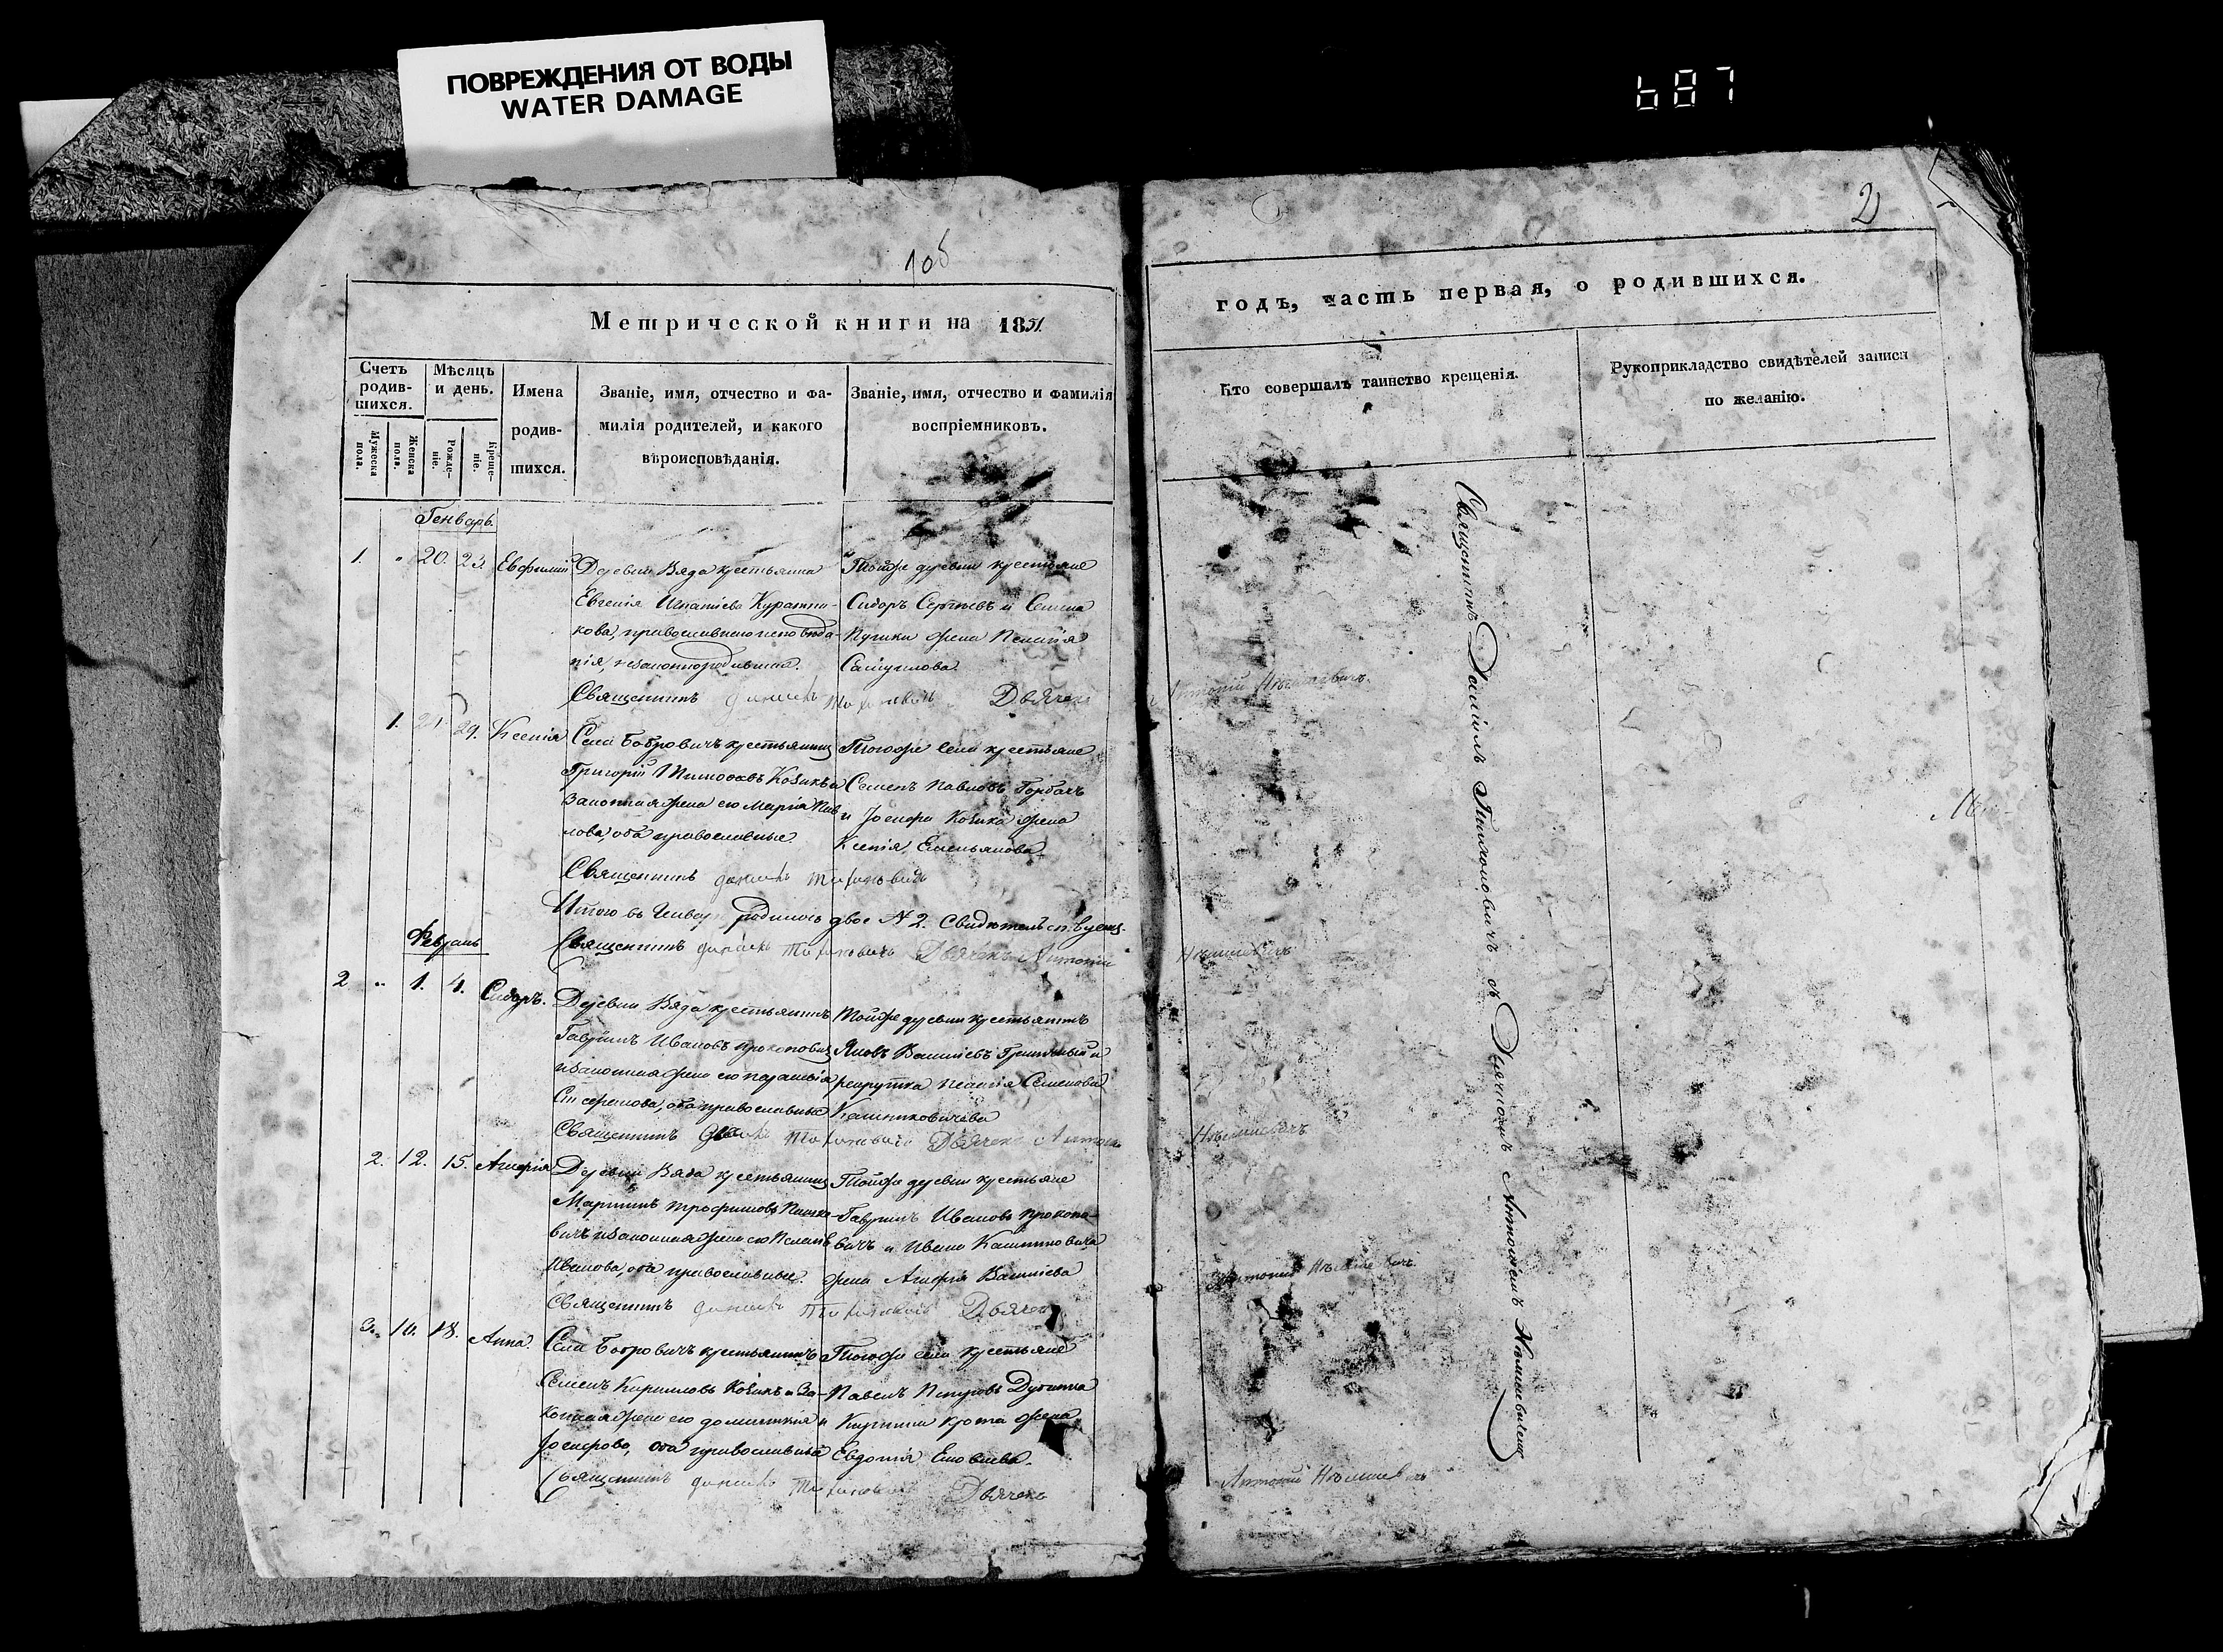 ПОВРЕЖДЕНИЯ ОТ ВОДЫ
WATER DAMAGE
687
2
Метрической книги на 1851.
годъ, часть первая, о родившихся.
Счетъ родившихся.
Мужеска пола.
Женска пола.
Мѣсяцъ и день.
Рожденіе.
Крещеніе.
Имена родившихся.
Званіе, имя, отчество и фамилія родителей, и какого вѣроисповѣданія.
Званіе, имя, отчество и фамилія воспріемниковъ.
Кто совершалъ таинство крещенія.
Рукоприкладство свидѣтелей записи по желанію.
Генварь.
1. 20. 23. Евфимій
Деревни Вяда крестьянка
Евгенія Игнатіева
православнаго исповѣда-
нія незаконнородившая.
Тойже деревни крестьяне
Сидоръ Сергѣевъ и Семена
жена Пелагія
Самуилова.
Священникъ Даниилъ Тихоновичъ Дьячекъ
Антоній Нѣмшевичъ.
1. 21. 29. Ксенія
Села Бобровичъ крестьянинъ
Григорій Тимофеевъ Козикъ и
Законная жена его Марія Пав-
лова, оба православные.
Тогоже села крестьяне
Семенъ Павловъ Горбачъ
и Іосифа Козика жена
Ксенія Емельянова
Священникъ Даниилъ Тихоновичъ
Итого въ Генварѣ родилось двое № 2.
Священникъ Даниилъ Тихоновичъ Дьячекъ Антоній
Нѣмшевичъ
Февраль
2 1. 4. Сидоръ.
Деревни Вяда крестьянинъ
Гавріилъ Ивановъ Прокоповичъ
и законная жена его Параскевія
оба православные
Тойже деревни крестьянинъ
Яковъ Василіевъ
рекрутка Пелагія Семенова
Калиниковичева
Священникъ Даниилъ Тихоновичъ Дьячекъ Антоній
Нѣмшевичъ
2. 12. 15. Агафія
Деревни Вяда крестьянинъ
Мартинъ Трофимовъ
и законная жена его Пелагія
Иванова, оба православные.
Тойже деревни крестьяне
Гавріилъ Ивановъ Прокопо-
вичъ и Ивана Калиниковича
жена Агафія Василіева
Священникъ Даниилъ Тихоновичъ Дьячекъ
Антоній Нѣмшевичъ.
3. 16. 18. Анна.
Села Бобровичъ крестьянинъ
Семенъ Кирилловъ Козикъ и За-
конная жена его Домникія
Іосифова, оба православные
Тогоже села крестьяне
Павелъ Петровъ
жена
Евдотія
Священникъ Даниилъ Тихоновичъ Дьячекъ
Антоній Нѣмшевичъ
Священникъ Даніилъ Тихоновичъ съ Дьячкомъ Антоніемъ Нѣмшевичемъ